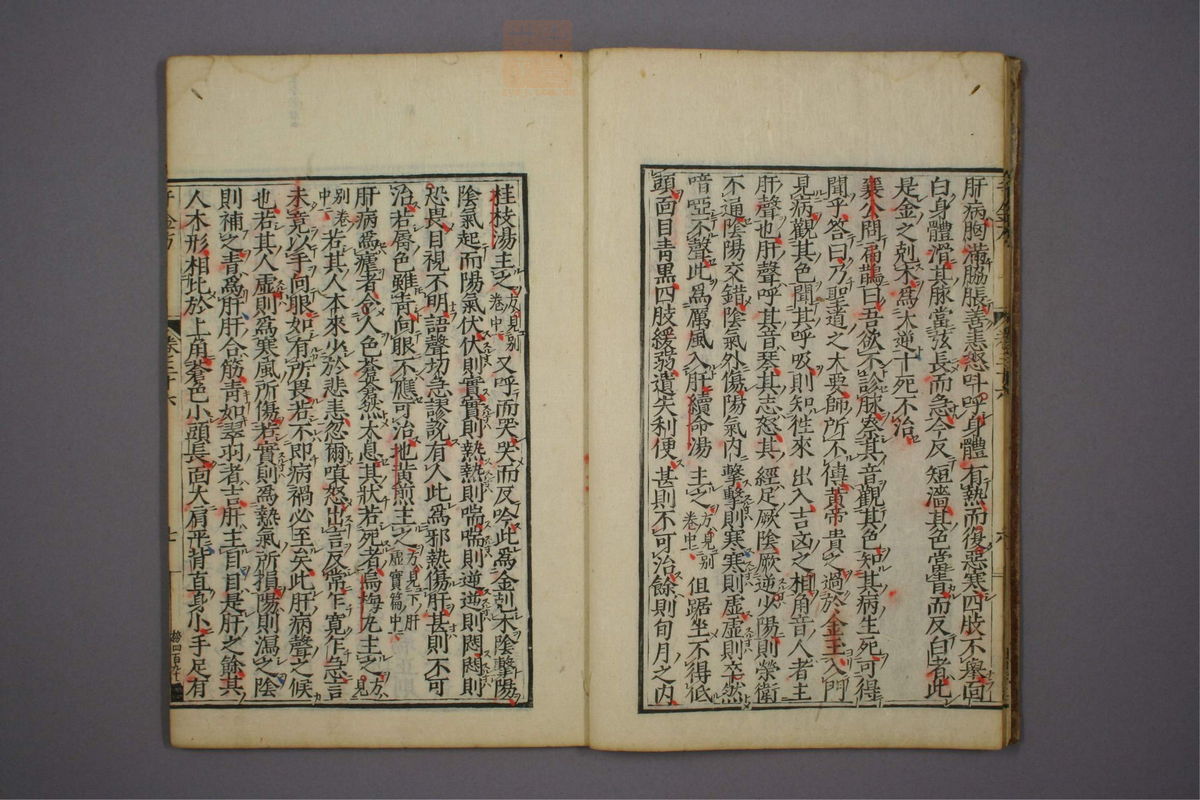 肝病胸滿脇脹善恚怒叫呼身體有熱而復惡寒四肢不舉面
白身體滑其脉當弦長而急今反短濇其色當青而反白者此
是金之剋木爲大逆十死不治
襄公問扁鵲曰吾欲不診脉察其音觀其色知其病生死可得
聞乎答曰乃聖道之大要師所不傳黃帝貴之過於金玉入門
見病觀其色聞其呼吸則知往來出入吉凶之相角音人者主
肝聲也肝聲呼其音琴其志怒其經足厥陰厥逆少陽則榮衛
不通陰陽交錯陰氣外傷陽氣內擊擊則寒寒則虛虛則卒然
喑啞不聲此爲厲風入肝續命湯主之方見別卷中但踞坐不得低
頭面目青黑四肢緩弱遺失利便甚則不可治餘則旬月之內
桂枝湯主之方見別卷中又呼而哭哭而反吟此爲金剋木陰擊陽
陰氣起而陽氣伏伏則實實則熱熱則喘喘則逆逆則悶悶則
恐畏目視不明語聲切急謬說有人此爲邪熱傷肝甚則不可
治若脣色雖青向眼不應可治地黃煎主之方見下肝虛實篇中
肝病爲瘧者令人色蒼蒼然太息其狀若死者烏梅丸主之方見
別卷中若其人本來少於悲恚忽爾嗔怒出言反常乍寬乍急言
未竟以手向眼如有所畏若不即病禍必至矣此肝病聲之候
也若其人虛則爲寒風所傷若實則爲熱氣所損陽則瀉之陰
則補之青爲肝肝合筋青如翠羽者吉肝主目目是肝之餘其
人木形相比於上角蒼色小頭長面大肩平背直身小手足有
卷三十六
七